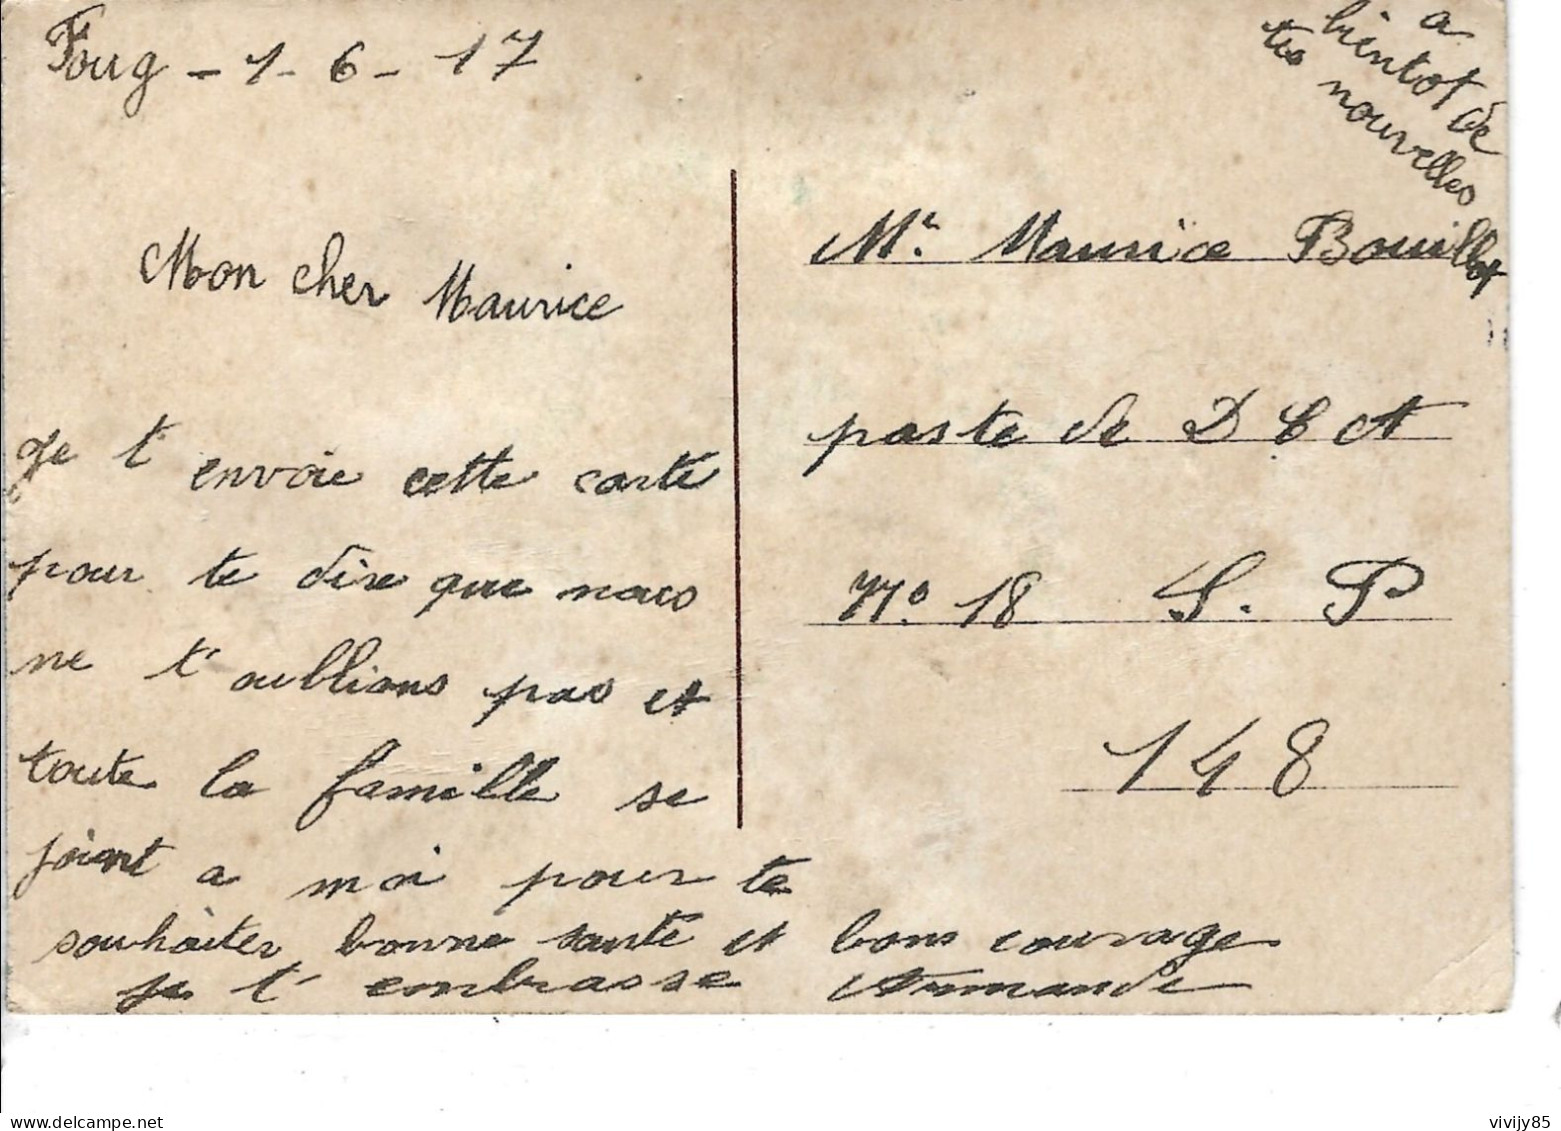 Foug - 1 - 6 - 17
Mon cher Maurice
Je t'envoie cette carte
pour te dire que nous
ne t'oublions pas et
toute la famille se
joint a moi pour te
souhaiter bonne santé et bons courage
je t'embrasse Armande
a
bientot de
tes nouvelles
Mr. Maurice Bouillot
poste de D C A
No. 18 S. P
148
vivijy85